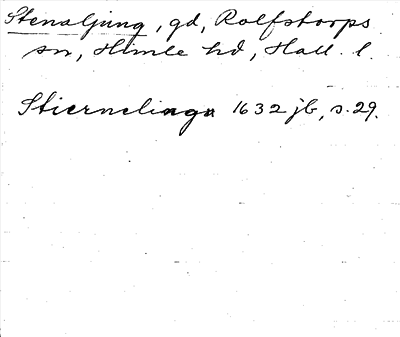 Stenaljung, gd, Rolfstorps
sn, Himle hd, Hall. l.
Stiernelinga 1632 jb, s. 29.